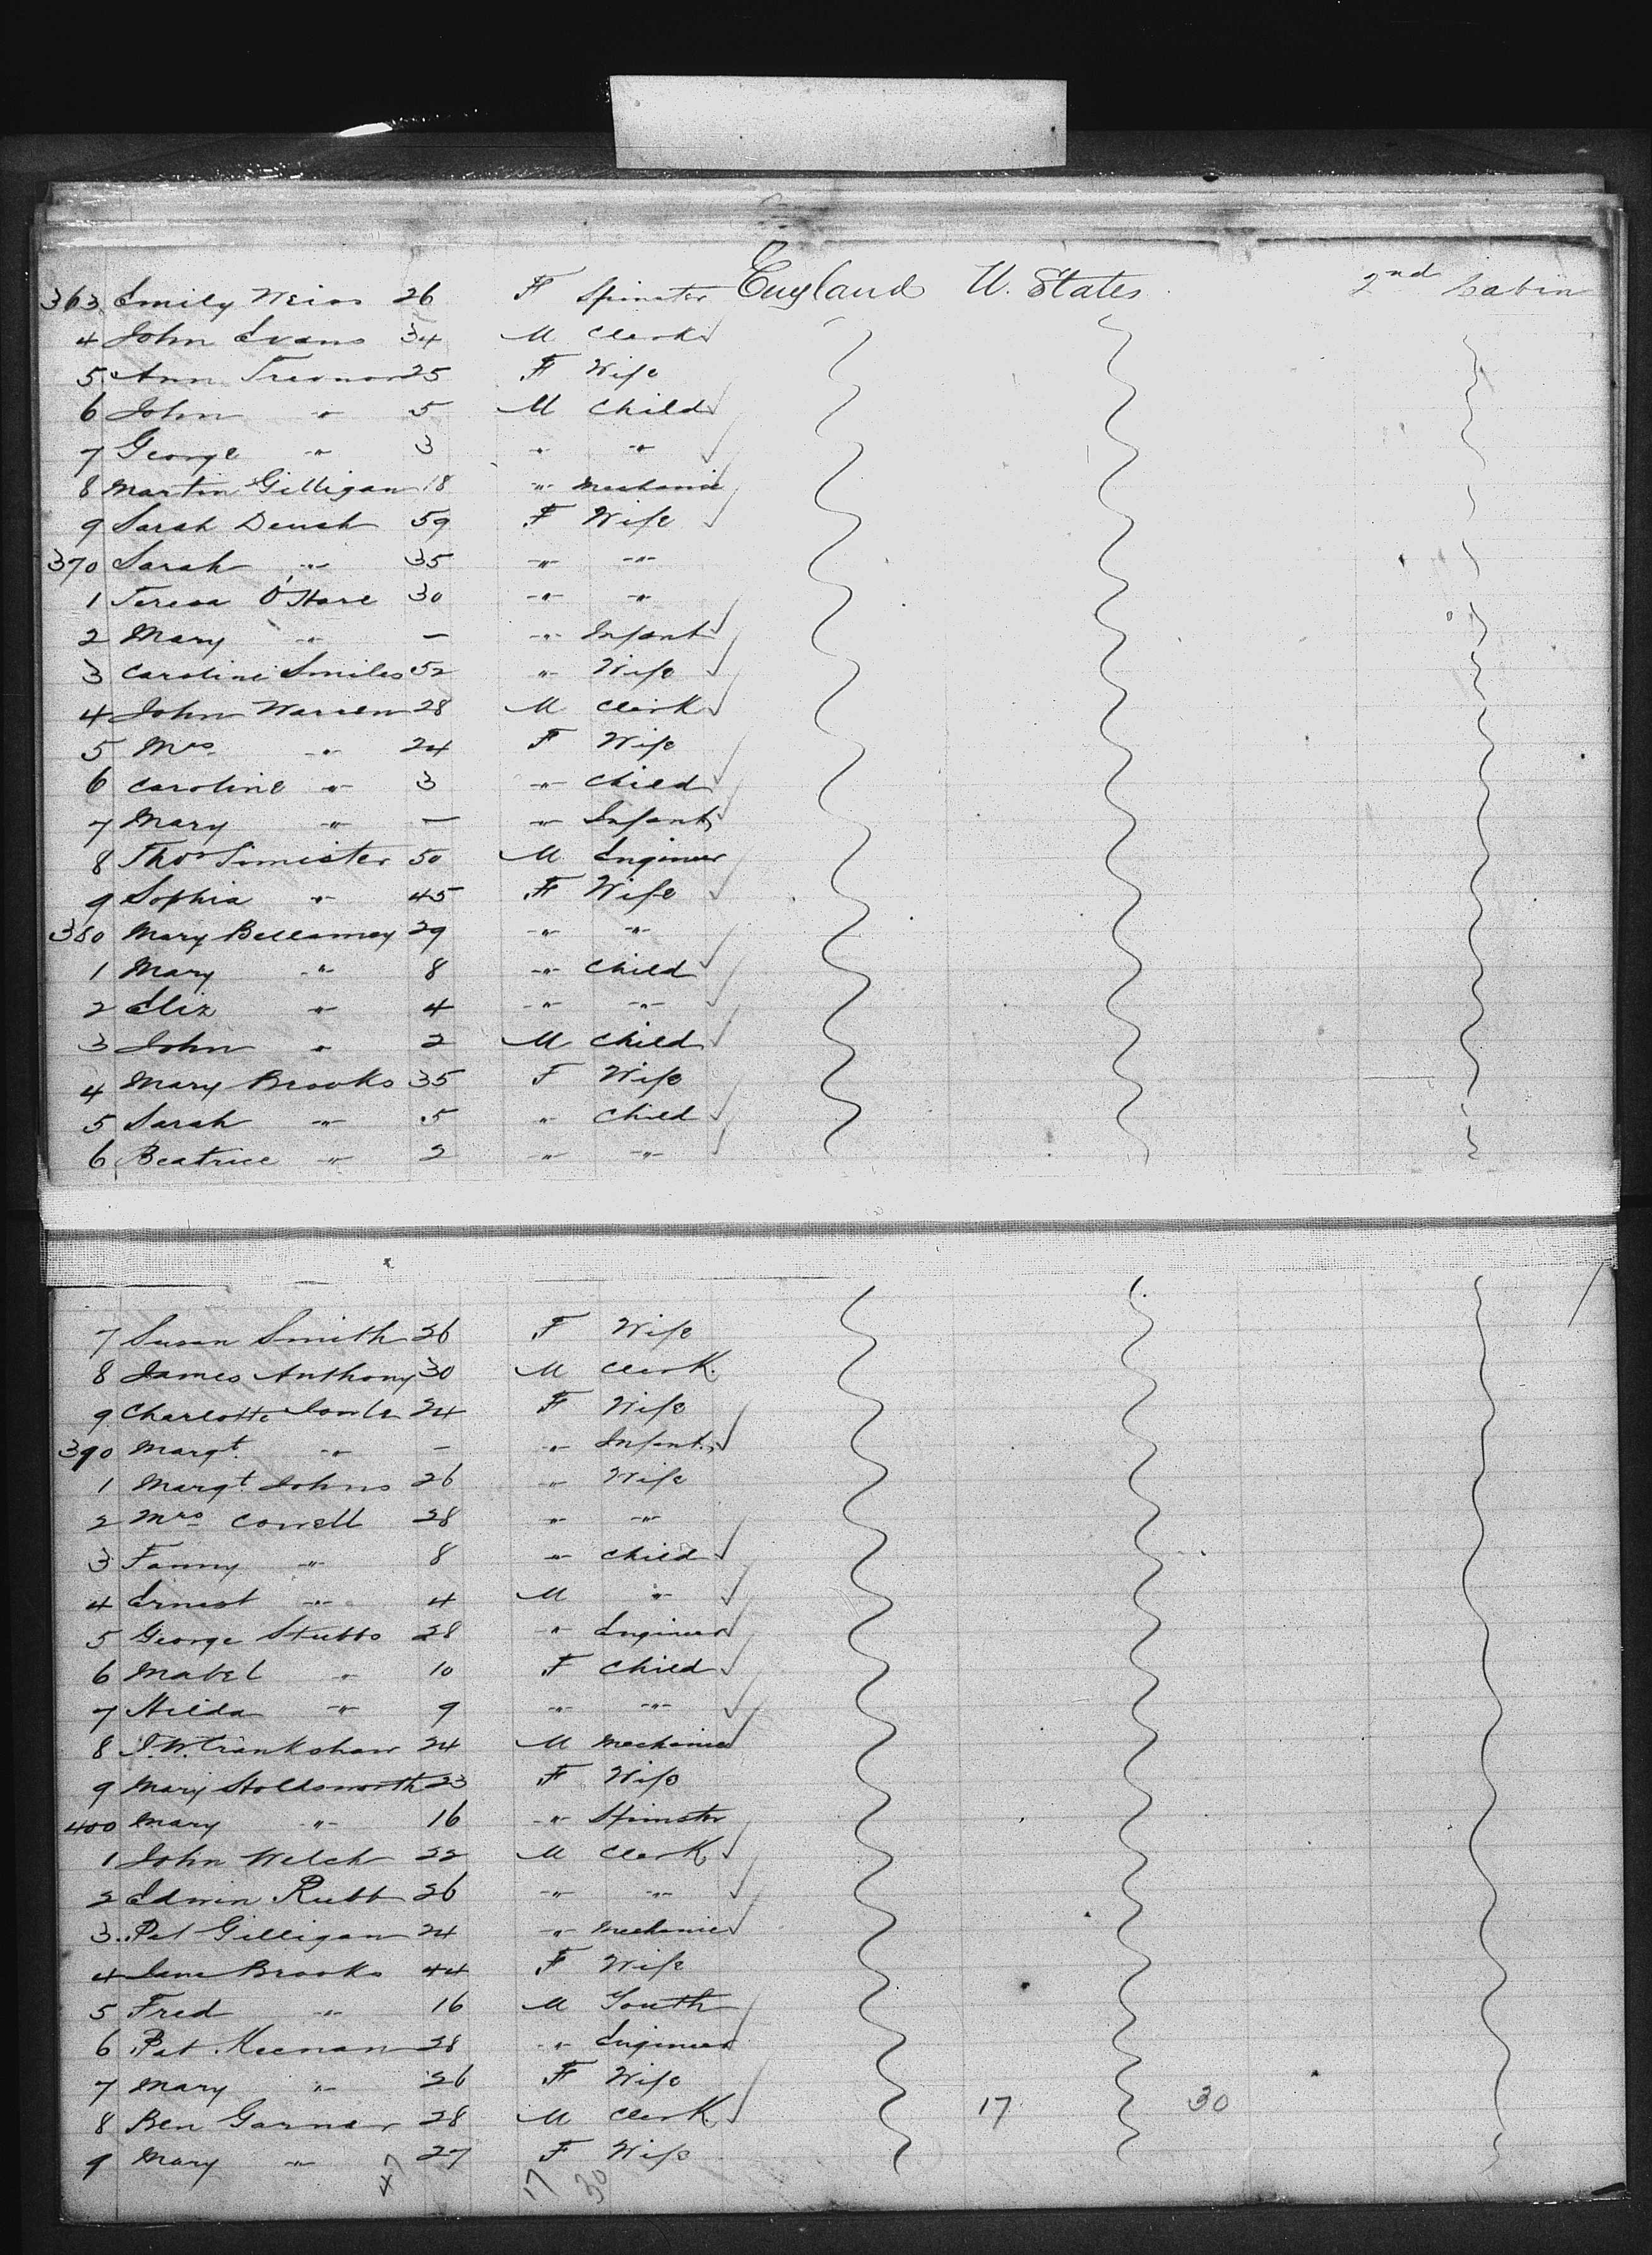 363 Emily Weiss 26 F Spinster England U. States 2nd Cabin
4 John Evans 34 M Clerk
5 Ann Treonor 25 F Wife
6 John " 5 M Child
7 George " 3 " "
8 Martin Gilligan 18 " Mechanic
9 Sarah 59 F Wife
370 Sarah " 35 " "
1 Teresa O'Hare 30 " "
2 Mary " — " Infant
3 Caroline Smiles 52 " Wife
4 John Warren 28 M Clerk
5 Mrs " 24 F Wife
6 Caroline " 3 " Child
7 Mary " — " Infant
8 Thos Simister 50 M Engineer
9 Sophia " 45 F Wife
380 Mary Bellamey 29 " "
1 Mary " 8 " Child
2 Eliz " 4 " "
3 John " 2 M Child
4 Mary Brooks 35 F Wife
5 Sarah " 5 " Child
6 Beatrice " 2 " "
7 Susan Smith 26 F Wife
8 James Anthony 30 M Clerk
9 Charlotte 24 F Wife
390 Margt. " — " Infant
1 Margt Johns 26 " Wife
2 Mrs Cowell 28 " "
3 Fanny " 8 " Child
4 Ernest " 4 M "
5 George Stubbs 28 " Engineer
6 Mabel " 10 F Child
7 Hilda " 9 " "
8 J.W. Crankshaw 24 M Mechanic
9 Mary Holdsworth 23 F Wife
400 Mary " 16 " Spinster
1 John Welch 22 M Clerk
2 Edwin Rubb 26 " "
3 Pat Gilligan 24 " Mechanic
4 Jane Brooks 44 F Wife
5 Fred " 16 M Youth
6 Pat Keenan 28 " Engineer
7 Mary " 26 F Wife
8 Ben Garner 28 M Clerk 17 30
9 Mary " 27 F Wife
47 17 30